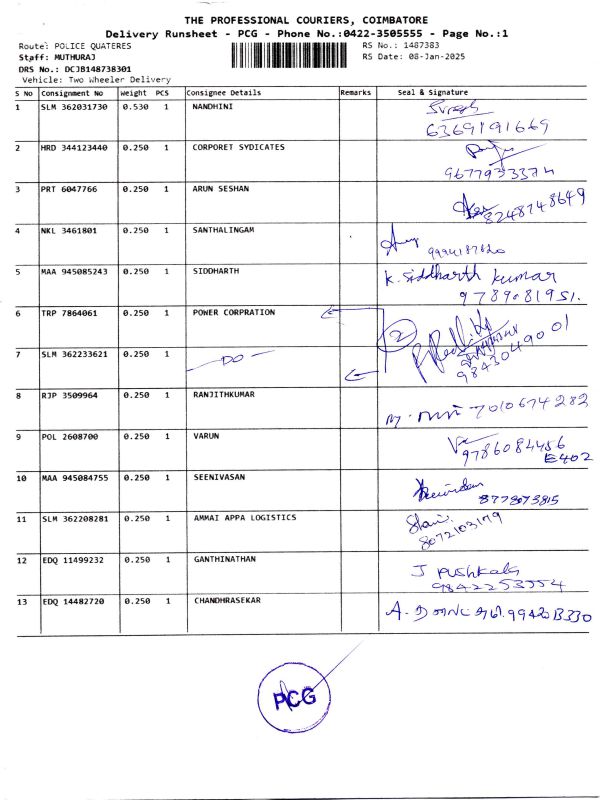 THE PROFESSIONAL COURIERS, COIMBATORE
Delivery Runsheet - PCG - Phone No.:0422-3505555 - Page No.:1
Route: POLICE QUATERES RS No.: 1487383
Staff: MUTHURAJ RS Date: 08-Jan-2025
DRS No.: DCJB148738301
Vehicle: Two Wheeler Delivery
S No Consignment No Weight PCS Consignee Details Remarks Seal & Signature
1 SLM 362031730 0.530 1 NANDHINI Suresh
6369191669
2 HRD 344123440 0.250 1 CORPORET SYDICATES
9677933374
3 PRT 6047766 0.250 1 ARUN SESHAN
8248748649
4 NKL 3461801 0.250 1 SANTHALINGAM
9994187820
5 MAA 945085243 0.250 1 SIDDHARTH K. Siddharth Kumar
9789081951.
6 TRP 7864061 0.250 1 POWER CORPRATION 2
9843049001
7 SLM 362233621 0.250 1 - DO -
8 RJP 3509964 0.250 1 RANJITHKUMAR 7010674282
9 POL 2608700 0.250 1 VARUN
9786084456
E402
10 MAA 945084755 0.250 1 SEENIVASAN
8778073815
11 SLM 362208281 0.250 1 AMMAI APPA LOGISTICS
8072103179
12 EDQ 11499232 0.250 1 GANTHINATHAN J Pushkala
9842253554
13 EDQ 14482720 0.250 1 CHANDHRASEKAR A.
PCG